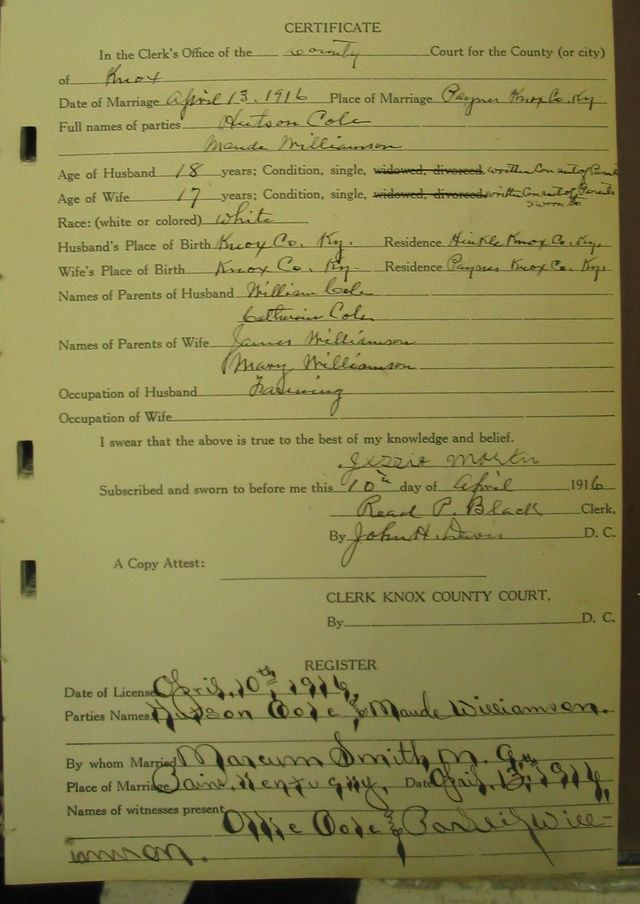 CERTIFICATE
In the Clerk's Office of the county Court for the County (or city)
of Knox
Date of Marriage April 13, 1916 Place of Marriage Paynes Knox Co. Ky
Full names of parties Hutson Cole
Maude Williamson
Age of Husband 18 years; Condition, single, widowed, divorced written Consent of Parents
Age of Wife 17 years; Condition, single, widowed, divorced written Consent of Parents
sworn to
Race: (white or colored) white
Husband's Place of Birth Knox Co. Ky. Residence Hinkle Knox Co. Ky.
Wife's Place of Birth Knox Co. Ky. Residence Paynes Knox Co. Ky.
Names of Parents of Husband William Cole
Cole
Names of Parents of Wife James Williamson
Mary Williamson
Occupation of Husband Farming
Occupation of Wife
I swear that the above is true to the best of my knowledge and belief.
Jezzie Martin
Subscribed and sworn to before me this 10th day of April 1916
Read P. Black Clerk,
By John H. Davis D. C.
A Copy Attest:
CLERK KNOX COUNTY COURT,
By D. C.
REGISTER
Date of License April, 10th, 1916,
Parties Names Hutson Cole & Maude Williamson.
By whom Married Marcum Smith M. G.
Place of Marriage Kentucky, Date April, 13, 1916,
Names of witnesses present
Ollie Cole & Will-
iamson.